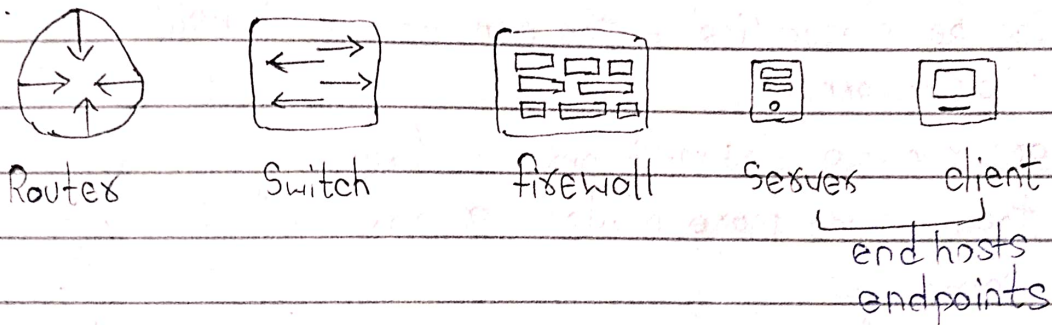 Router Switch firewall Server client
end hosts
endpoints